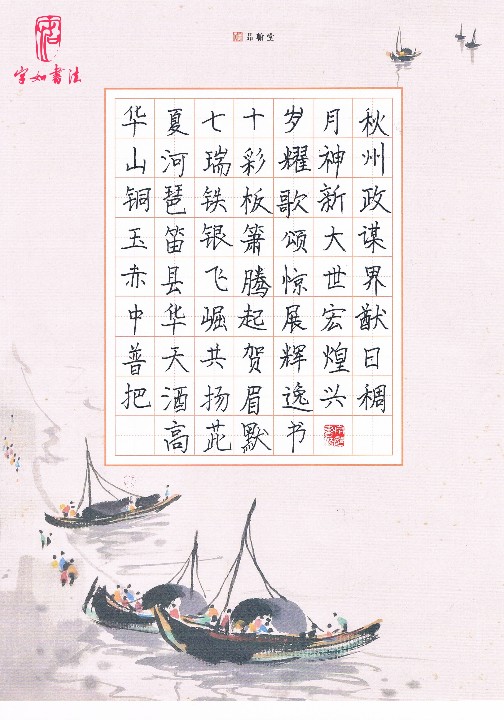 字如書法
品翰堂
华夏七十岁月秋
山河瑞彩耀神州
铜琶铁板歌新政
玉笛银箫颂大谋
赤县飞腾惊世界
中华崛起展宏猷
普天共贺辉煌日
把酒扬眉逸兴稠
高茈默书